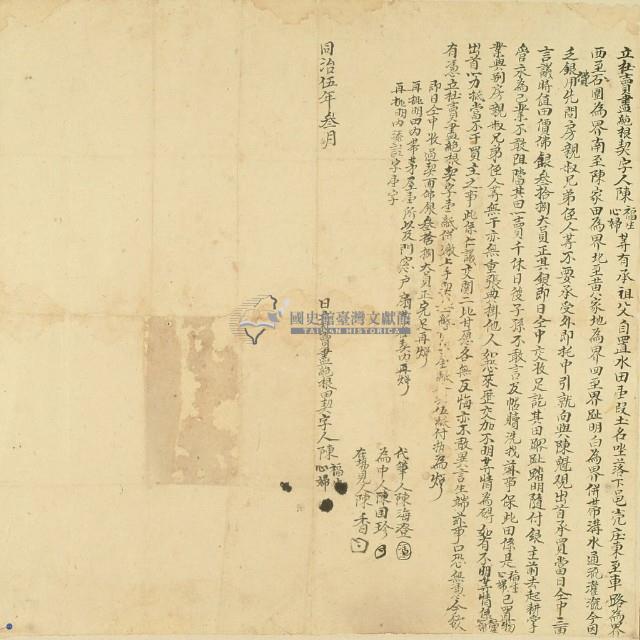 立杜賣盡絕根契字人陳福生心婦等有承祖父自置水田壹段土名坐落下邑
庄東至車路為界
西至石圍為界南至陳家田為界北至黃家地為界四至界趾明白為界併帶溝水通流灌溉今因
乏銀費用先問房親叔兄弟侄人等不要承受外即托中引就向與陳魁
出首承買當日仝中三面
言議時值田價佛銀叁拾捌大員正其銀即日仝中交收足訖其田界趾踏明隨付銀主前去起耕掌
管永為己業不敢阻擋其田一賣千休日後子孫不敢言及帖贖洗找
等事保此田係是福生心婦己置物
業與別房親叔兄弟侄人等無干亦無重張典掛他人
來歷交加不明等情為碍如有不明等情係
出首一力抵當不干買主之事此係仁義交關二比甘愿各無反悔亦不敢異言生端
等事口恐無憑今欲
有憑立杜賣盡絕根契字壹紙併繳上手契
伍紙付執為炤
即日仝中收過契面佛銀叁拾捌大員正完足再炤
再批明田內帶茅屋壹所以及門窓戶扇
在內再炤
再批明內添註字壹字
代筆人陳海澄
為中人陳国珍
在場見陳香
同治伍年叁月 日立杜賣盡絕根田契字人陳福生心婦
國史館臺灣文獻館
TAIWAN HISTORICA